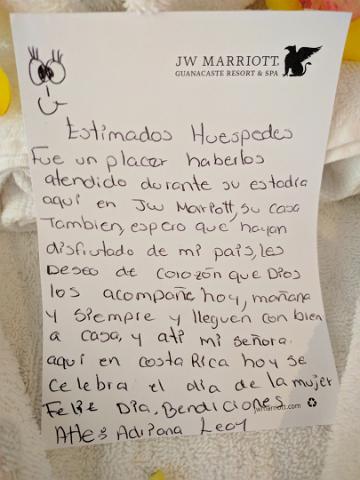 JW MARRIOTT
GUANACASTE RESORT & SPA
Estimados Huespedes
Fue un placer haberlos
atendido durante su estadia
aquí en JW Marriott, su casa
Tambien, espero que hayan
disfrutado de mi pais, les
Deseo de corozón que Dios
los acompañe hoy, mañana
y siempre y lleguen con bien
a casa, y ati mi señora.
aquí en costa Rica hoy se
celebra el dia de la mujer
Feliz Dia, Bendiciones
jwmarriott.com
Atte: Adriana Leay